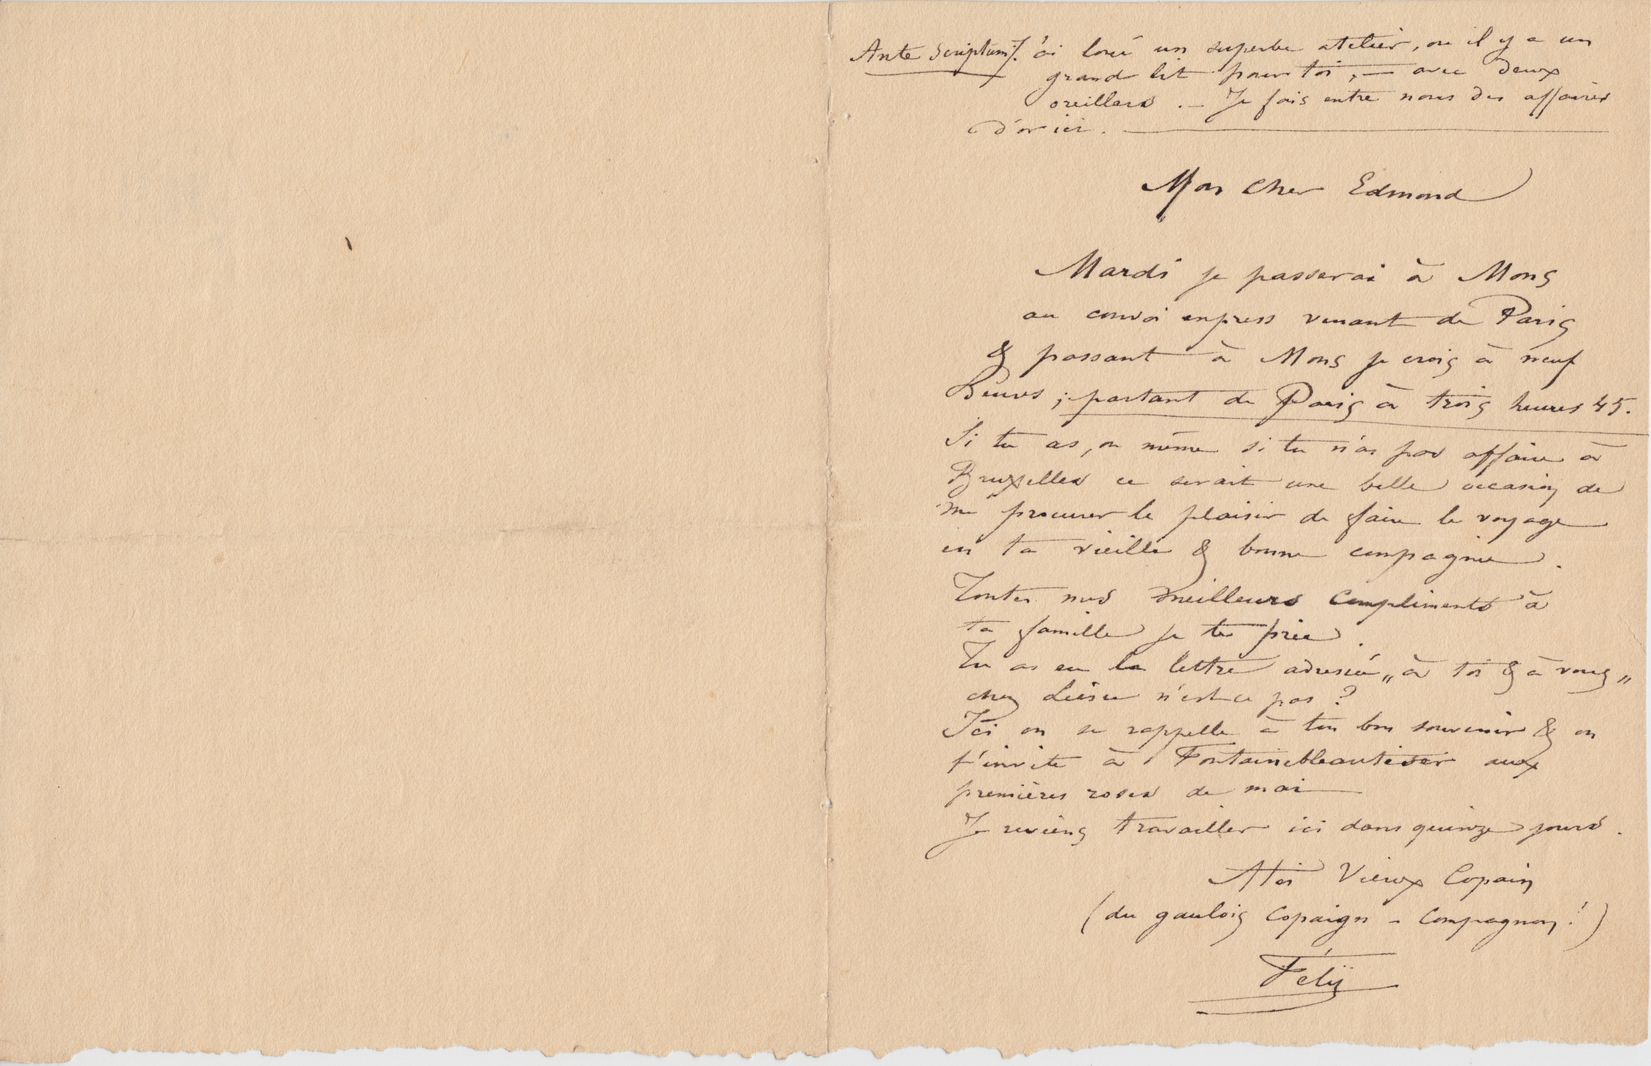 Ante Scriptum J'ai loué un superbe atelier, ou il y a un
grand lit pour toi, — avec deux
oreillers. — Je fais entre nous des affaires
d'or ici.
Mon Cher Edmond
Mardi je passerai à Mons
au convoi express venant de Paris
& passant à Mons je crois à neuf
heures ; partant de Paris à trois heures 45.
Si tu as, ou même si tu n'as pas affaire à
Bruxelles ce serait une belle occasion de
me procurer le plaisir de faire le voyage
en ta vieille & bonne compagnie.
Toutes nos meilleurs compliments à
ta famille je te prie.
Tu as eu la lettre adressée „à toi & à vous„
chez Liesse n'est-ce pas ?
Ici on se rappelle à ton bon souvenir & on
t'invite à Fontainebleautiser aux
premières roses de mai —
Je reviens travailler ici dans quinze jours.
A toi Vieux Copain
(du gaulois Copaign - Compagnon !)
Fély